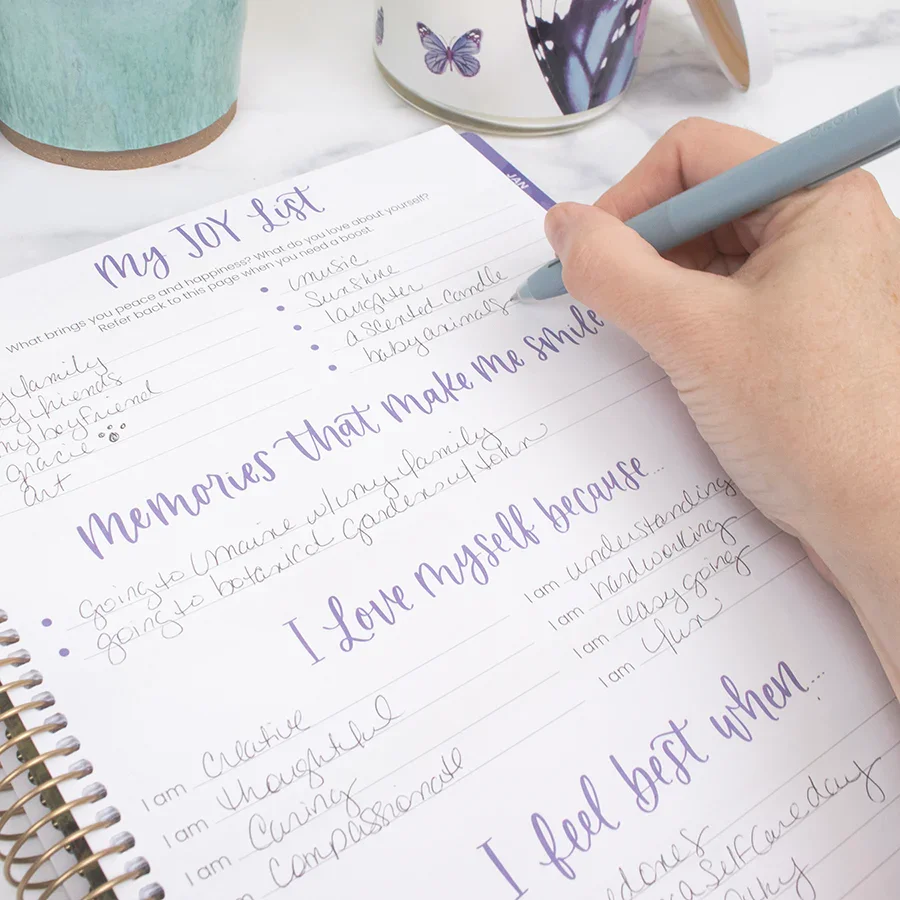 JAN
My JOY List
What brings you peace and happiness? What do you love about yourself?
Refer back to this page when you need a boost.
family
friends
my boyfriend
gracie
art
music
Sunshine
laughter
a scented candle
baby animals
Memories that make me smile
going to Maine w/ my family
going to botanical gardens w/ John
I Love Myself because...
I am creative
I am thoughtful
I am caring
compassionate
I am understanding
I am hardworking
I am easy going
I am fun
I feel best when...
a self care day